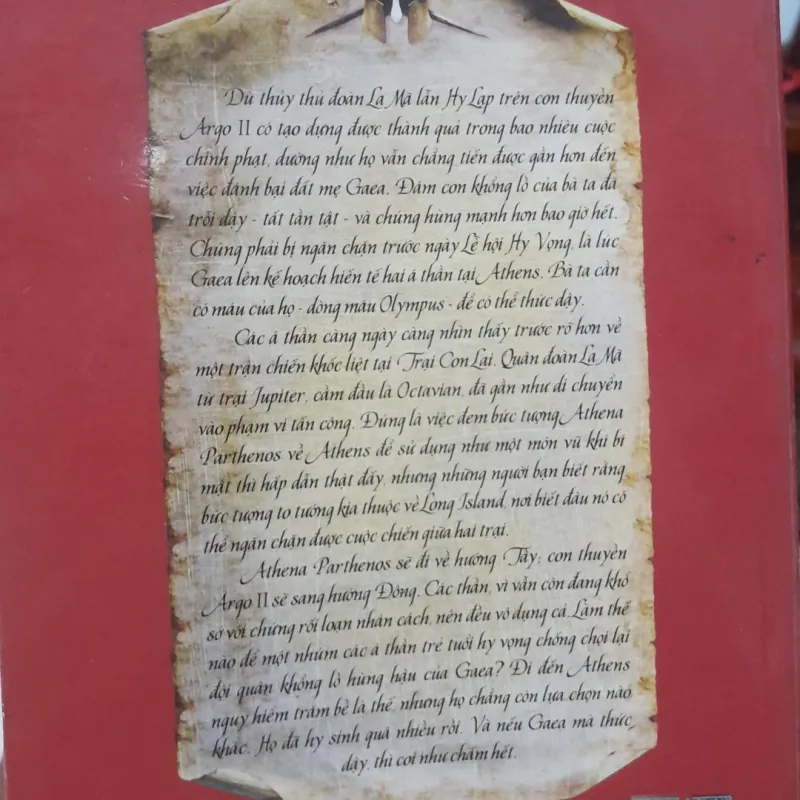 Dù thủy thủ đoàn La Mã lẫn Hy Lạp trên con thuyền
Argo II có tạo dựng được thành quả trong bao nhiêu cuộc
chinh phạt, dường như họ vẫn chẳng tiến được gần hơn đến
việc đánh bại đất mẹ Gaea. Đám con khổng lồ của bà ta đã
trỗi dậy - tất tần tật - và chúng hùng mạnh hơn bao giờ hết.
Chúng phải bị ngăn chặn trước ngày Lễ hội Hy Vọng, là lúc
Gaea lên kế hoạch hiến tế hai á thần tại Athens. Bà ta cần
có máu của họ - dòng máu Olympus - để có thể thức dậy.
Các á thần càng ngày càng nhìn thấy trước rõ hơn về
một trận chiến khốc liệt tại Trại Con Lai. Quân đoàn La Mã
từ trại Jupiter, cầm đầu là Octavian, đã gần như di chuyển
vào phạm vi tấn công. Đúng là việc đem bức tượng Athena
Parthenos về Athens để sử dụng như một món vũ khí bí
mật thì hấp dẫn thật đấy, nhưng những người bạn biết rằng
bức tượng to tướng kia thuộc về Long Island, nơi biết đâu nó có
thể ngăn chặn được cuộc chiến giữa hai trại.
Athena Parthenos sẽ đi về hướng Tây; con thuyền
Argo II sẽ sang hướng Đông. Các thần, vì vẫn còn đang khổ
sở với chứng rối loạn nhân cách, nên đều vô dụng cả. Làm thế
nào để một nhúm các á thần trẻ tuổi hy vọng chống chọi lại
đội quân khổng lồ hùng hậu của Gaea? Đi đến Athens
nguy hiểm trăm bề là thế, nhưng họ chẳng còn lựa chọn nào
khác. Họ đã hy sinh quá nhiều rồi. Và nếu Gaea mà thức
dậy, thì coi như chấm hết.